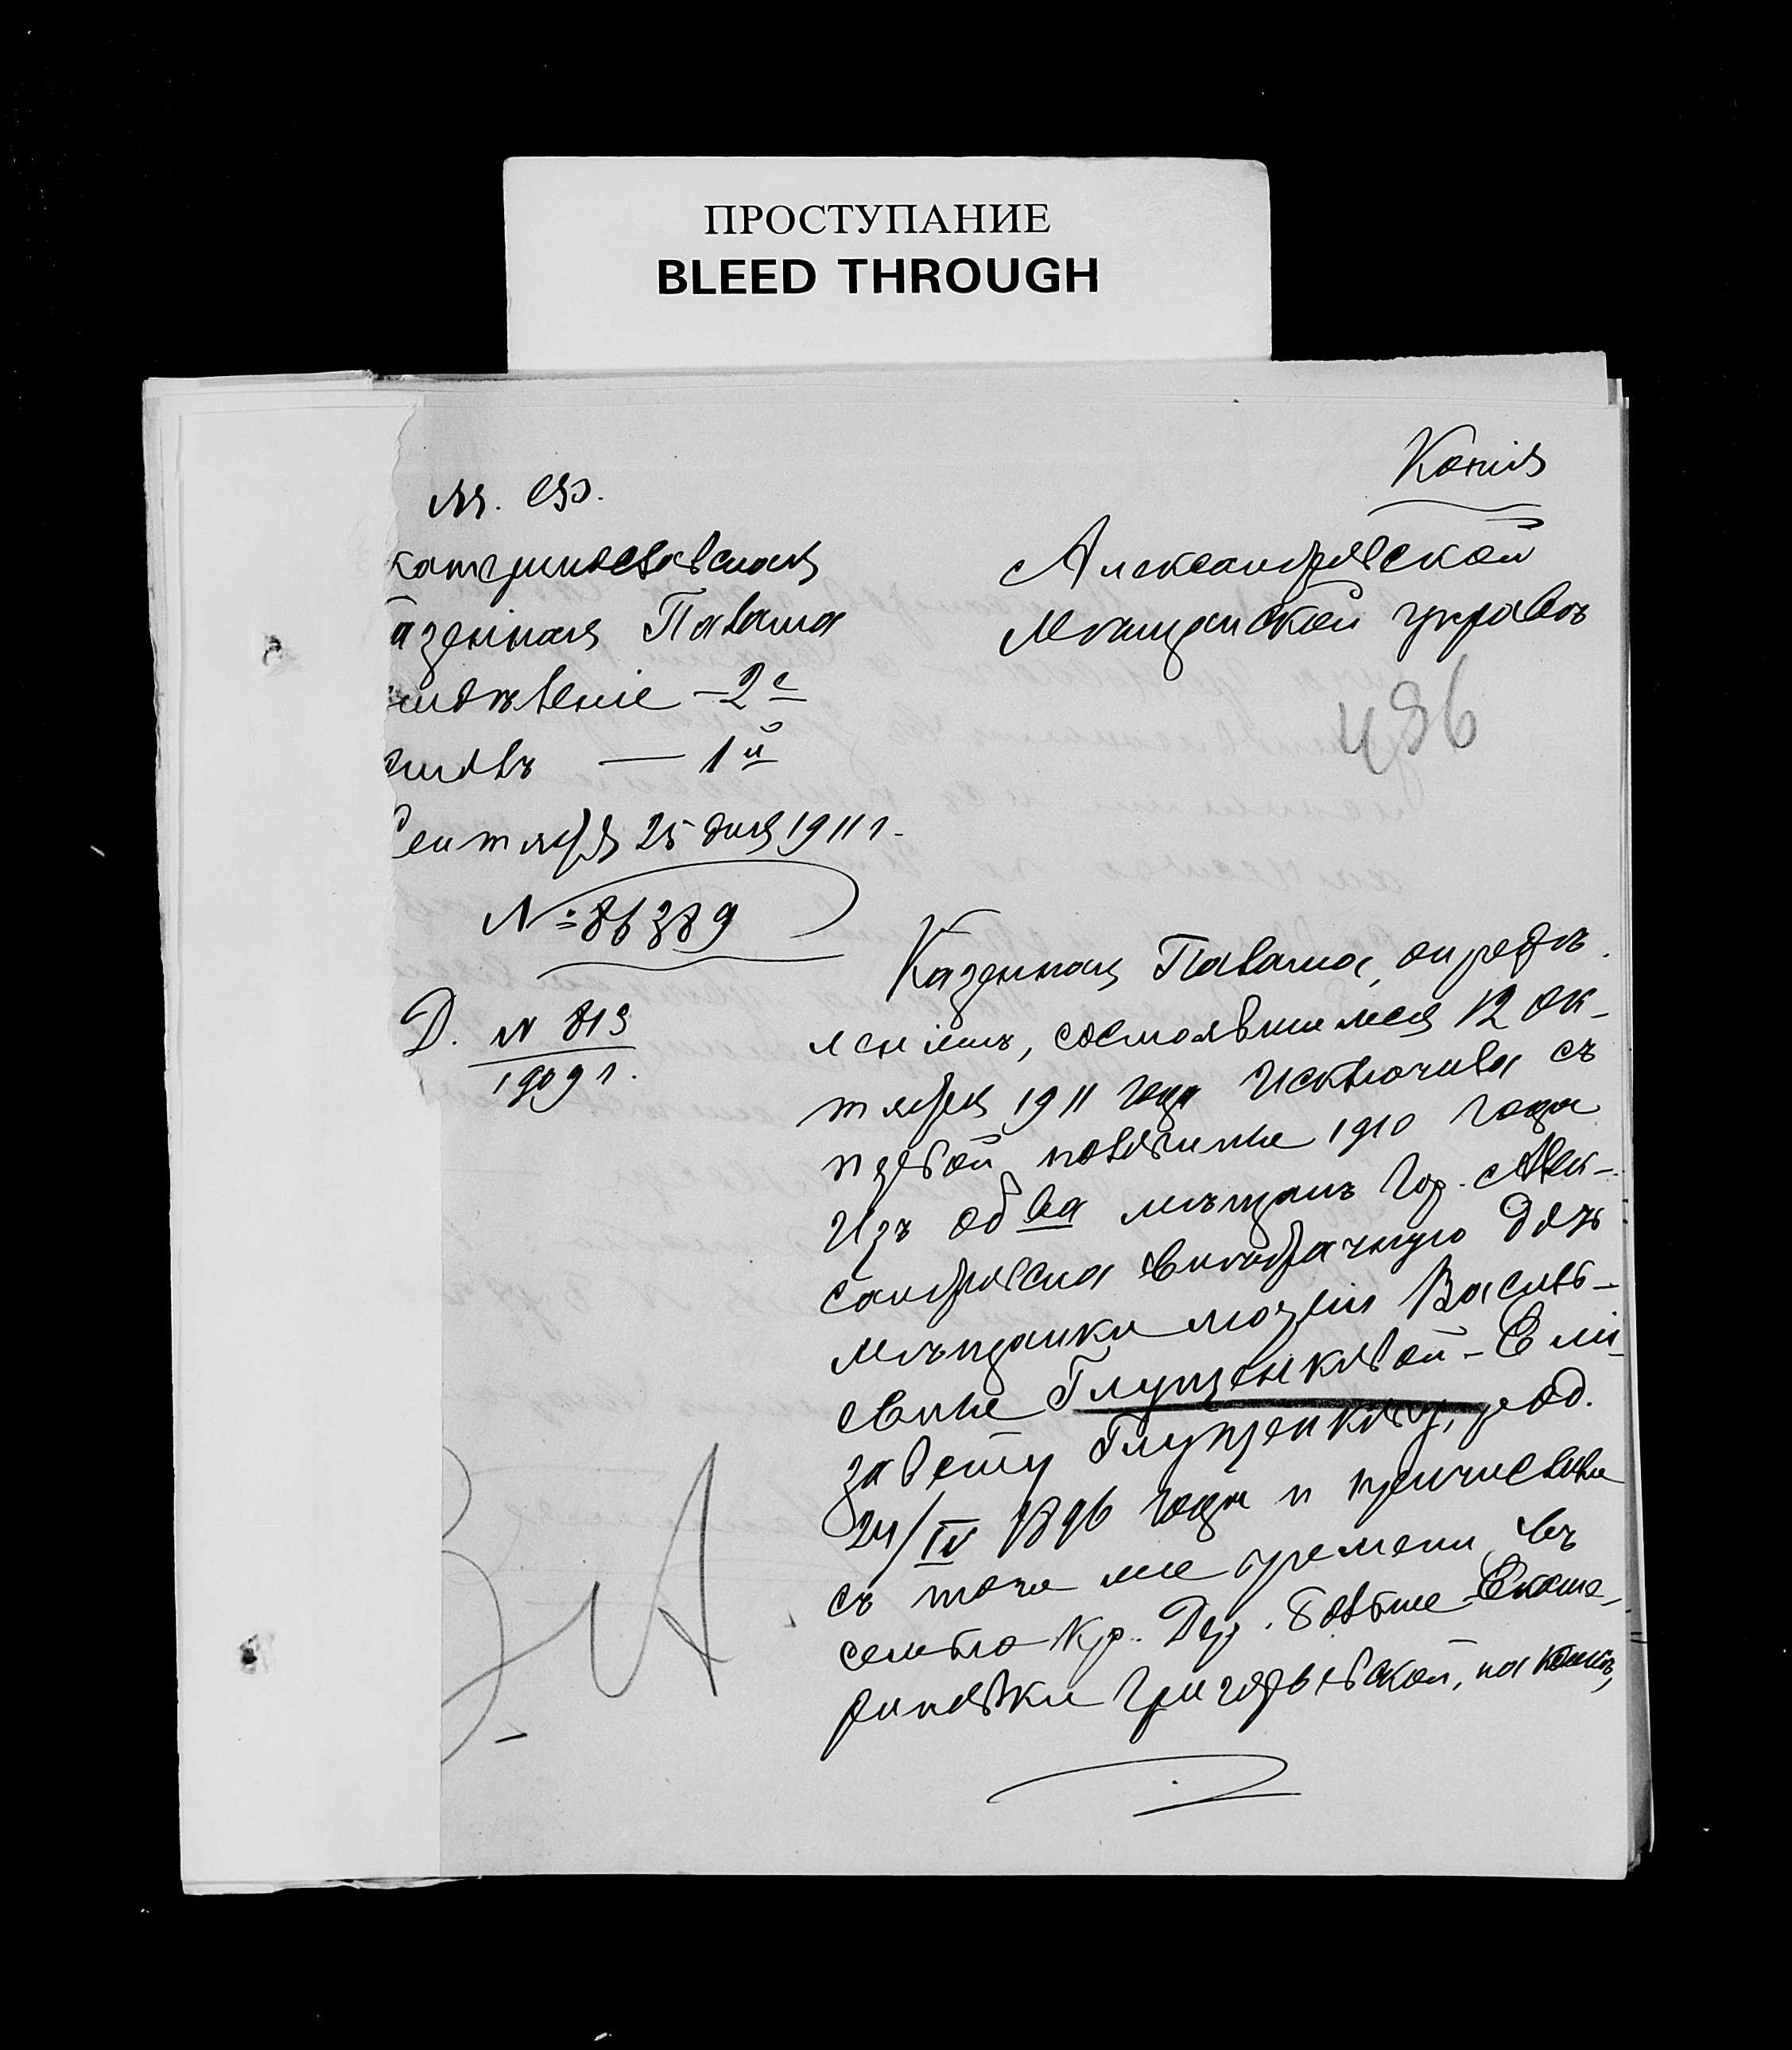 ПРОСТУПАНИЕ
BLEED THROUGH
Копія
М. Ф.
катеринославская
азенная Палата
тдѣленіе — 2е
толъ — 1й
Сентября 25 дня 1911 г.
№ 86389
Д. № 813
1909 г.
Александровской
Мѣщанской управѣ
486
Казенная Палата, опредѣ
леніемъ, состоявшимся 12 ок-
тября 1911 года исключила съ
первой половины 1910 года
изъ об ва мѣщанъ гор. Алек-
сандровска внѣбрачную дочь
мѣщанки Маріи Василь-
евны Глущенковой - Ели
завету Глущенкову, род.
24/IV 1896 года и причислила
съ того же времени въ
семью кр. Дер. Больше Екате-
риновки Григорьевской,